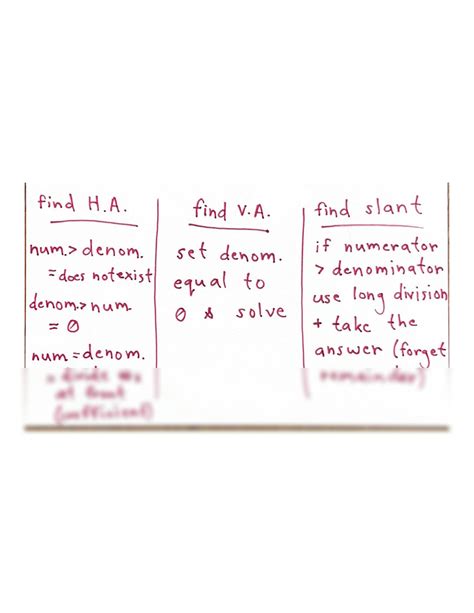 find H.A.
num.> denom.
= does not exist
denom.> num.
= 0
num = denom.
find V.A.
set denom.
equal to
0 & solve
find slant
if numerator
> denominator
use long division
+ take the
answer (forget